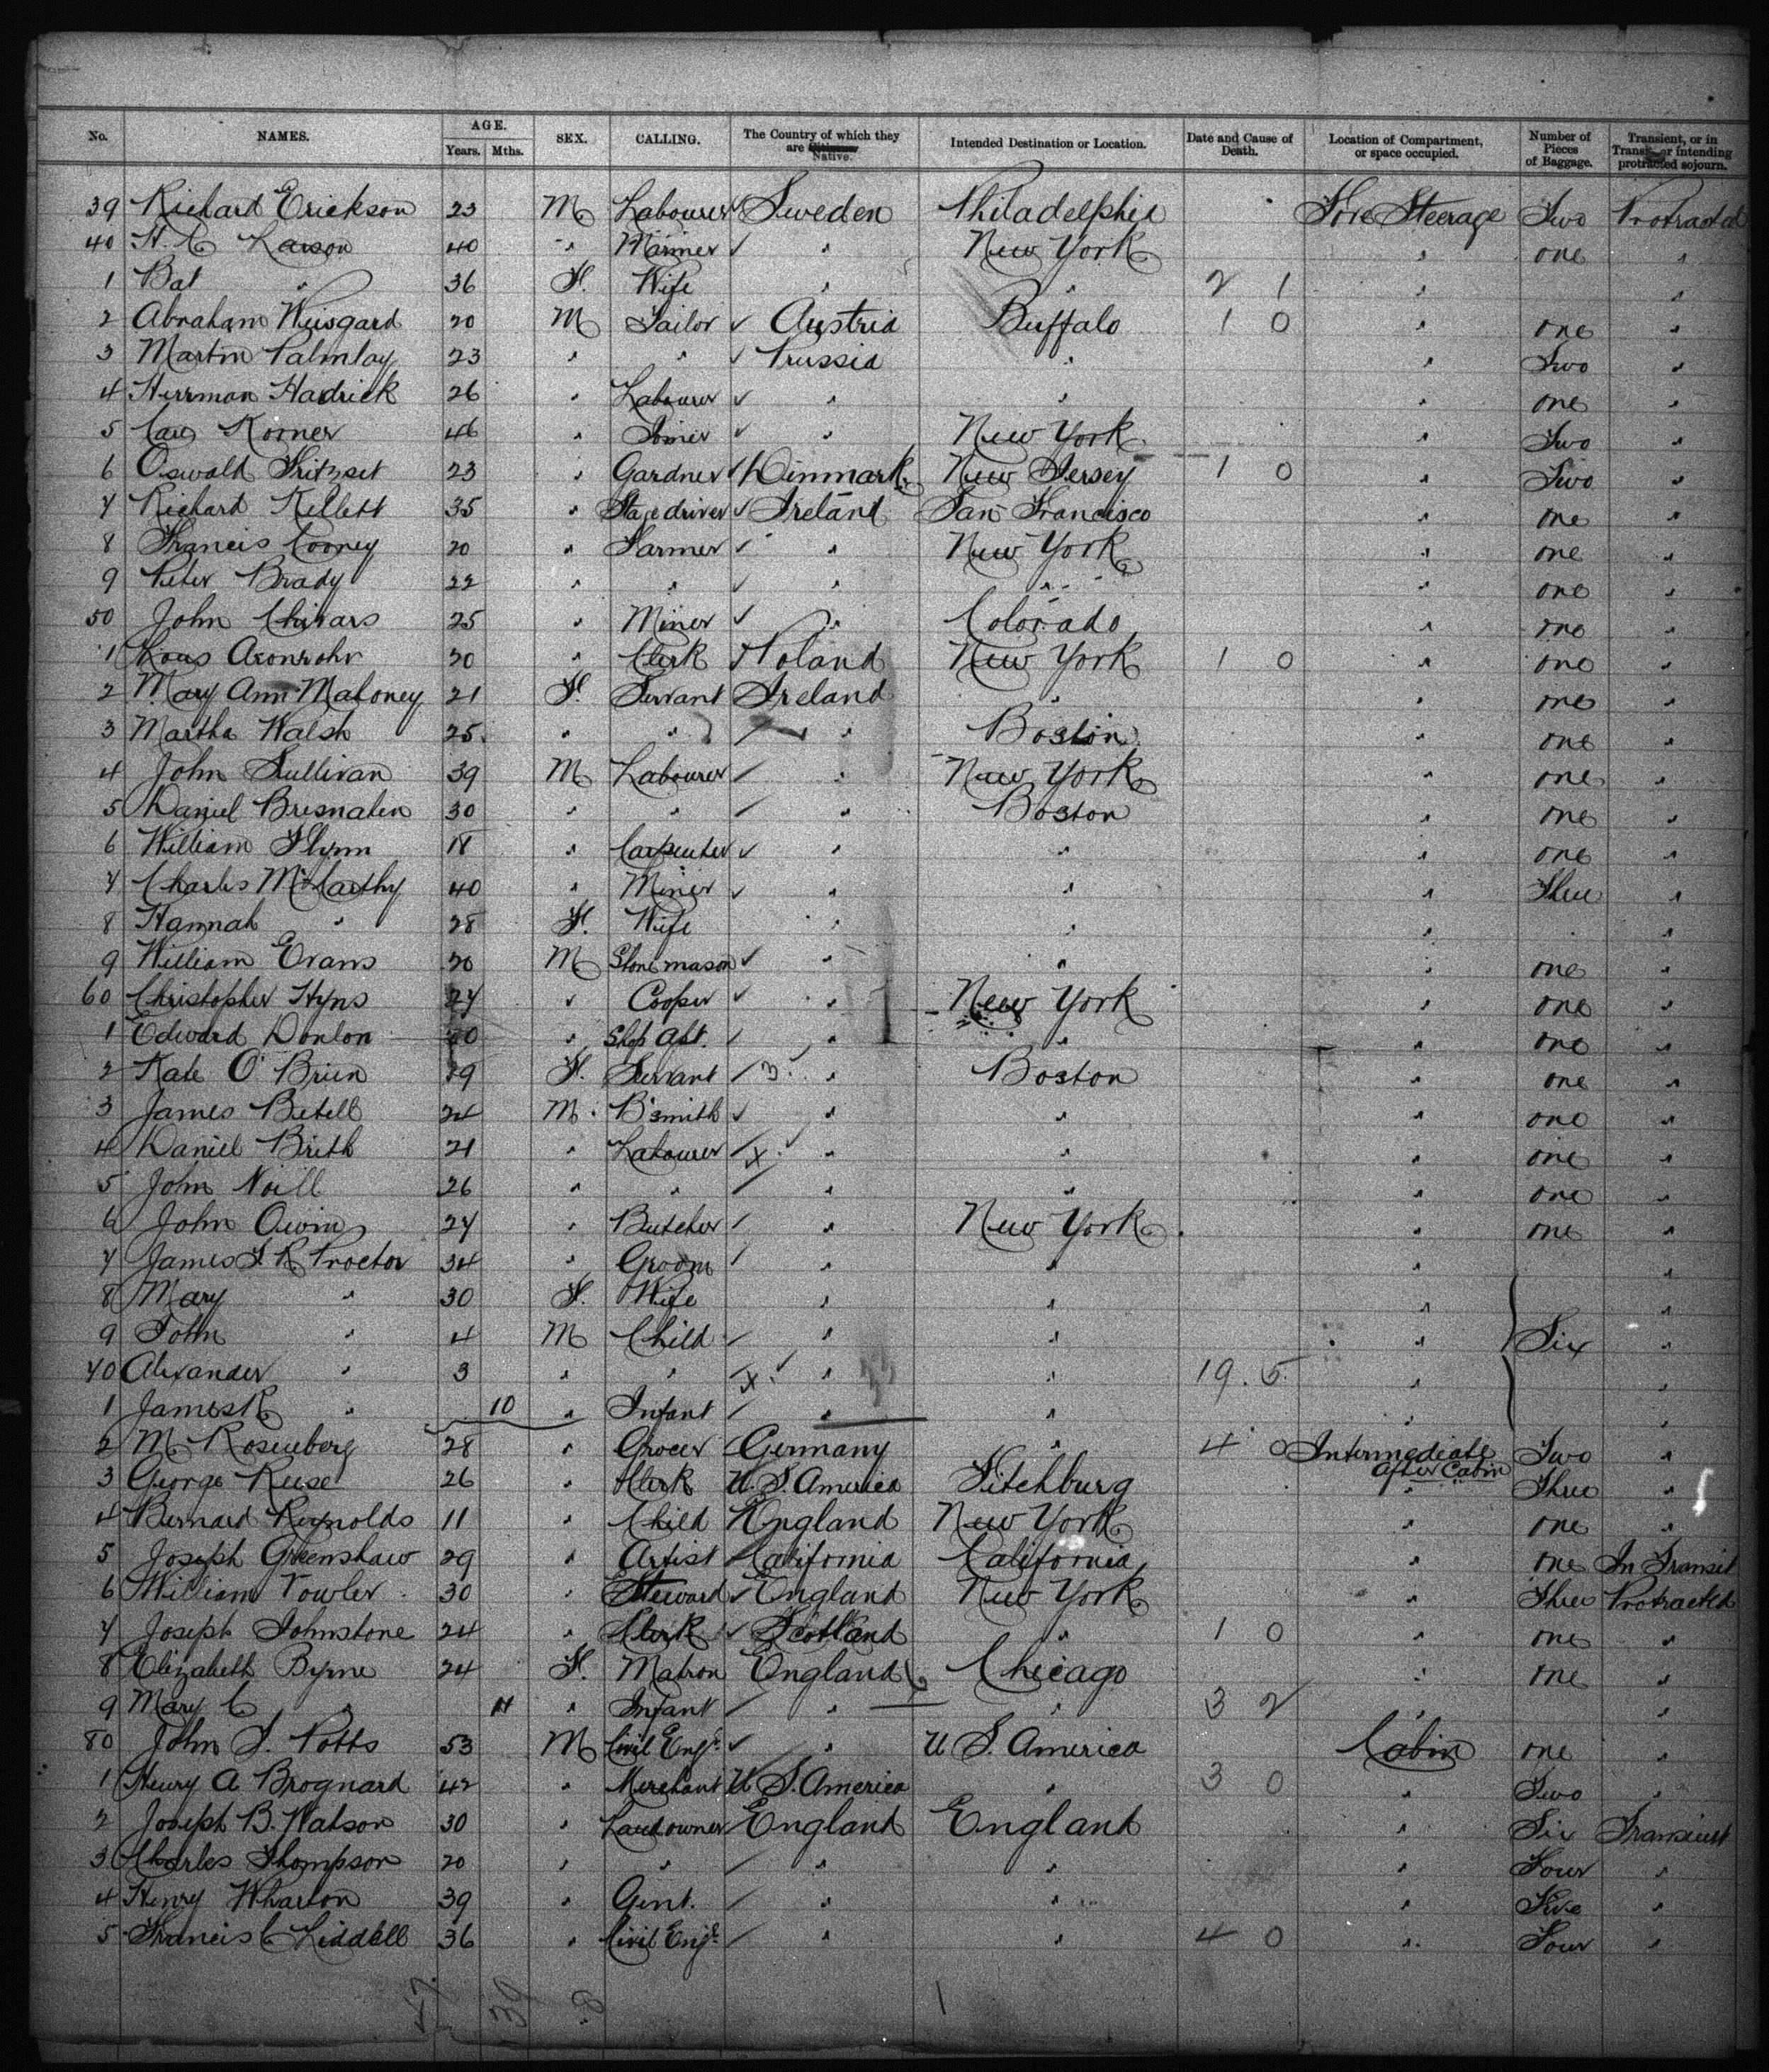 No. NAMES. AGE. Years. Mths. SEX. CALLING. The Country of which they are Native. Intended Destination or Location. Date and Cause of Death. Location of Compartment, or space occupied. Number of Pieces of Baggage. Transient, or in Transit, or intending protracted sojourn.
39 Richard Erickson 23 M Labourer ✓ Sweden Philadelphia " Fore Steerage Two Protracted
40 H. C. Larson 40 " Mariner ✓ " New York " one "
1 " 36 F. Wife " " 2 1 " "
2 Abraham Weisgard 20 M Tailor ✓ Austria Buffalo 1 0 " one "
3 Martin Palmlay 23 " " ✓ Prussia " " Two "
4 Herrman Hadrick 26 " Labourer ✓ " " " one "
5 Korner 46 " Joiner ✓ " New York " Two "
6 Oswald Fritzset 23 " Gardner ✓ Dinmark New Jersey 1 0 " Two "
7 Richard Kellett 35 " Stage driver ✓ Ireland San Francisco " one "
8 Francis Cooney 20 " Farmer ✓ " New York " one "
9 Peter Brady 22 " " ✓ " " " one "
50 John Chivars 25 " Miner ✓ " Colorado " one "
1 20 " Clerk Poland New York 1 0 " one "
2 Mary Ann Mahoney 21 F. Servant Ireland " " one "
3 Martha Walsh 25 " " / " Boston " one "
4 John Sullivan 39 M Labourer / " New York " one "
5 Daniel Bresnahen 30 " " / " Boston " one "
6 William Flynn 18 " Carpenter ✓ " " " one "
7 Charles McCarthy 40 " Miner ✓ " " " Three "
8 Hannah " 28 F. Wife " " " "
9 William Evans 20 M Stone mason ✓ " " " one "
60 Christopher Hyns 27 " Cooper ✓ " New York " one "
1 Edward Donlon " Shop Ast. / " " " one "
2 Kate O'Brien F. Servant / 3 " Boston " one "
3 James Betell 24 M. B'smith ✓ " " " one "
4 Daniel Brith 21 " Labourer / x ✓ " " " one "
5 John Neill 26 " " / " " " one "
6 John Owins 27 " Butcher / " New York " one "
7 James F. R. Proctor 34 " Groom / " " " "
8 Mary " 30 F. Wife " " " "
9 John " 4 M Child / " " " Six "
70 Alexander " 3 " " / x ✓ " " 19. 5. " "
1 James R " 10 " Infant / " " " "
2 M Rosenberg 28 " Grocer Germany " 4 0 Intermediate After Cabin Two "
3 George Reese 26 " Clerk U. S. America Fitchburg " Three "
4 Bernard Reynolds 11 " Child England New York " one "
5 Joseph Greenshaw 29 " Artist California California " one In Transit
6 William Vowler 30 " Steward ✓ England New York " Three Protracted
7 Joseph Johnstone 24 " Clerk ✓ Scotland " 1 0 " one "
8 Elizabeth Byrne 24 F. Matron England Chicago " one "
9 Mary C " 11 " Infant / " " 3 2 " "
80 John S. Potts 53 M Civil Engr. ✓ " U S. America Cabin one "
1 Henry A Brognard 42 " Merchant U S. America " 3 0 " Two "
2 Joseph B. Watson 30 " Landowner England England " Six Transient
3 Charles Thompson 20 " " / " " " Four "
4 Henry Wharton 39 " Gent. / " " " Five "
5 Francis C Liddell 36 " Civil Engr. / " " 4 0 " Four "
47. 39 8 1